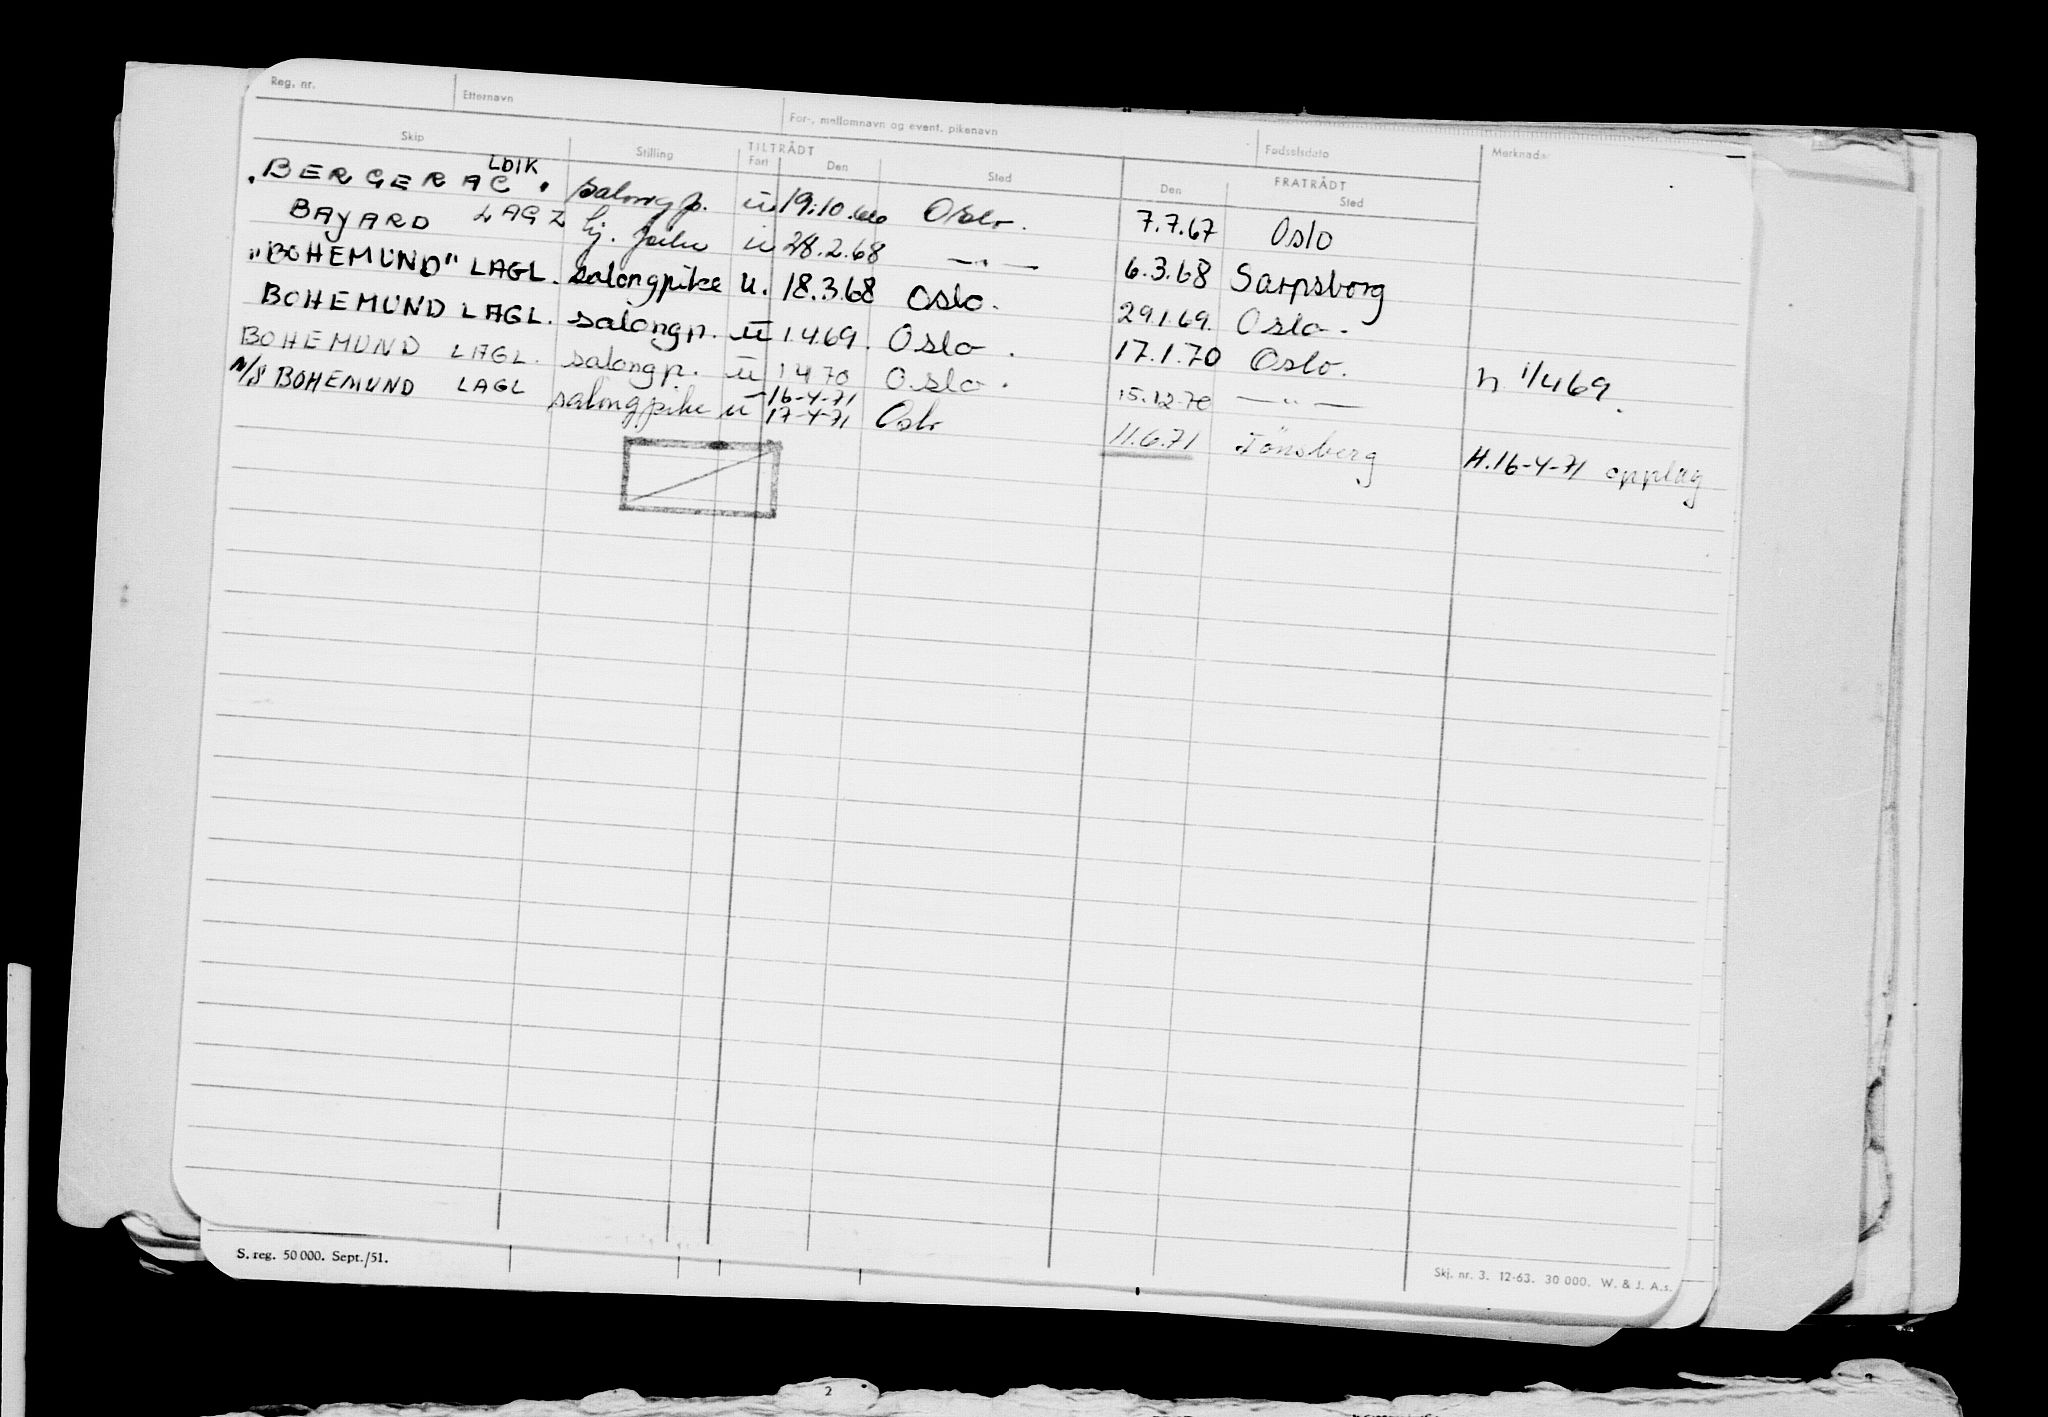 Reg. nr. Etternavn For-, mellomnavn og event. pikenavn Fødselsdato Merknader
Skip Stilling TILTRÅDT FRATRÅDT
Fart Den Sted Den Sted
"BERGERAC" LDIK salongp. u 19.10.66 Oslo. 7.7.67 Oslo
BAYARD LAGZ u 28.2.68 — " — 6.3.68 Sarpsborg
"BOHEMUND" LAGL. salongpike u. 18.3.68 Oslo. 29.1.69. Oslo.
BOHEMUND LAGL. salongp. u 1.4.69. Oslo. 17.1.70 Oslo. h 1/4 69.
BOHEMUND LAGL. salongp. u 1.4.70 Oslo. 15.12.70 — " —
M/S BOHEMUND LAGL salongpike u 16-4-71
17-4-71 Oslo 11.6.71 Tönsberg H.16-4-71 opplag
S. reg. 50 000. Sept./51.
Skj. nr. 3. 12-63. 30 000. W. & J. A.s.
2